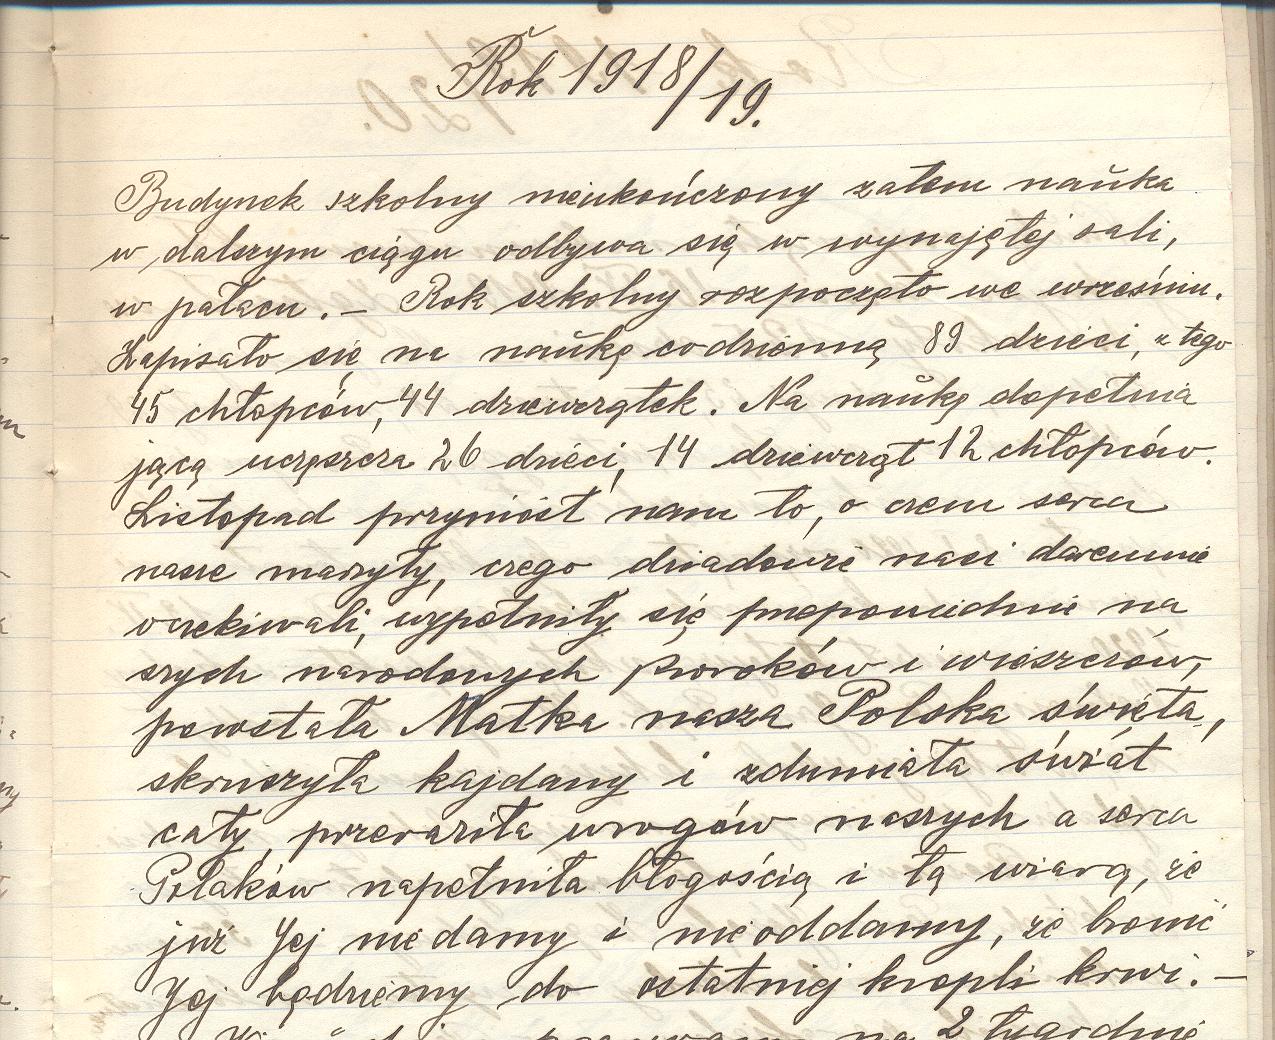 Rok 1918/19.
Budynek szkolny nieukończony zatem nauka
w dalszym ciągu odbywa się w wynajętej sali,
w pałacu. – Rok szkolny rozpoczęto we wrześniu.
Zapisało się na naukę codzienną 89 dzieci, z tego
45 chłopców, 44 dziewcząłek. Na naukę dopełnia
jącą uczęszcza 26 dzieci, 14 dziewcząt 12 chłopców.
Listopad przyniósł nam to, o czem serca
nasze marzyły, czego dziadowie nasi daremnie
oczekiwali, wypełniły się przepowiednie na
szych narodowych proroków i wieszczów,
powstała Matka nasza Polska święta,
skruszyła kajdany i zdumiała świat
cały, przeraziła wrogów naszych a serca
Polaków napełniła błogością i tą wiarą, że
już Jej nie damy i nie oddamy, że bronić
Jej będziemy do ostatniej kropli krwi. –
na 2 tygodnie